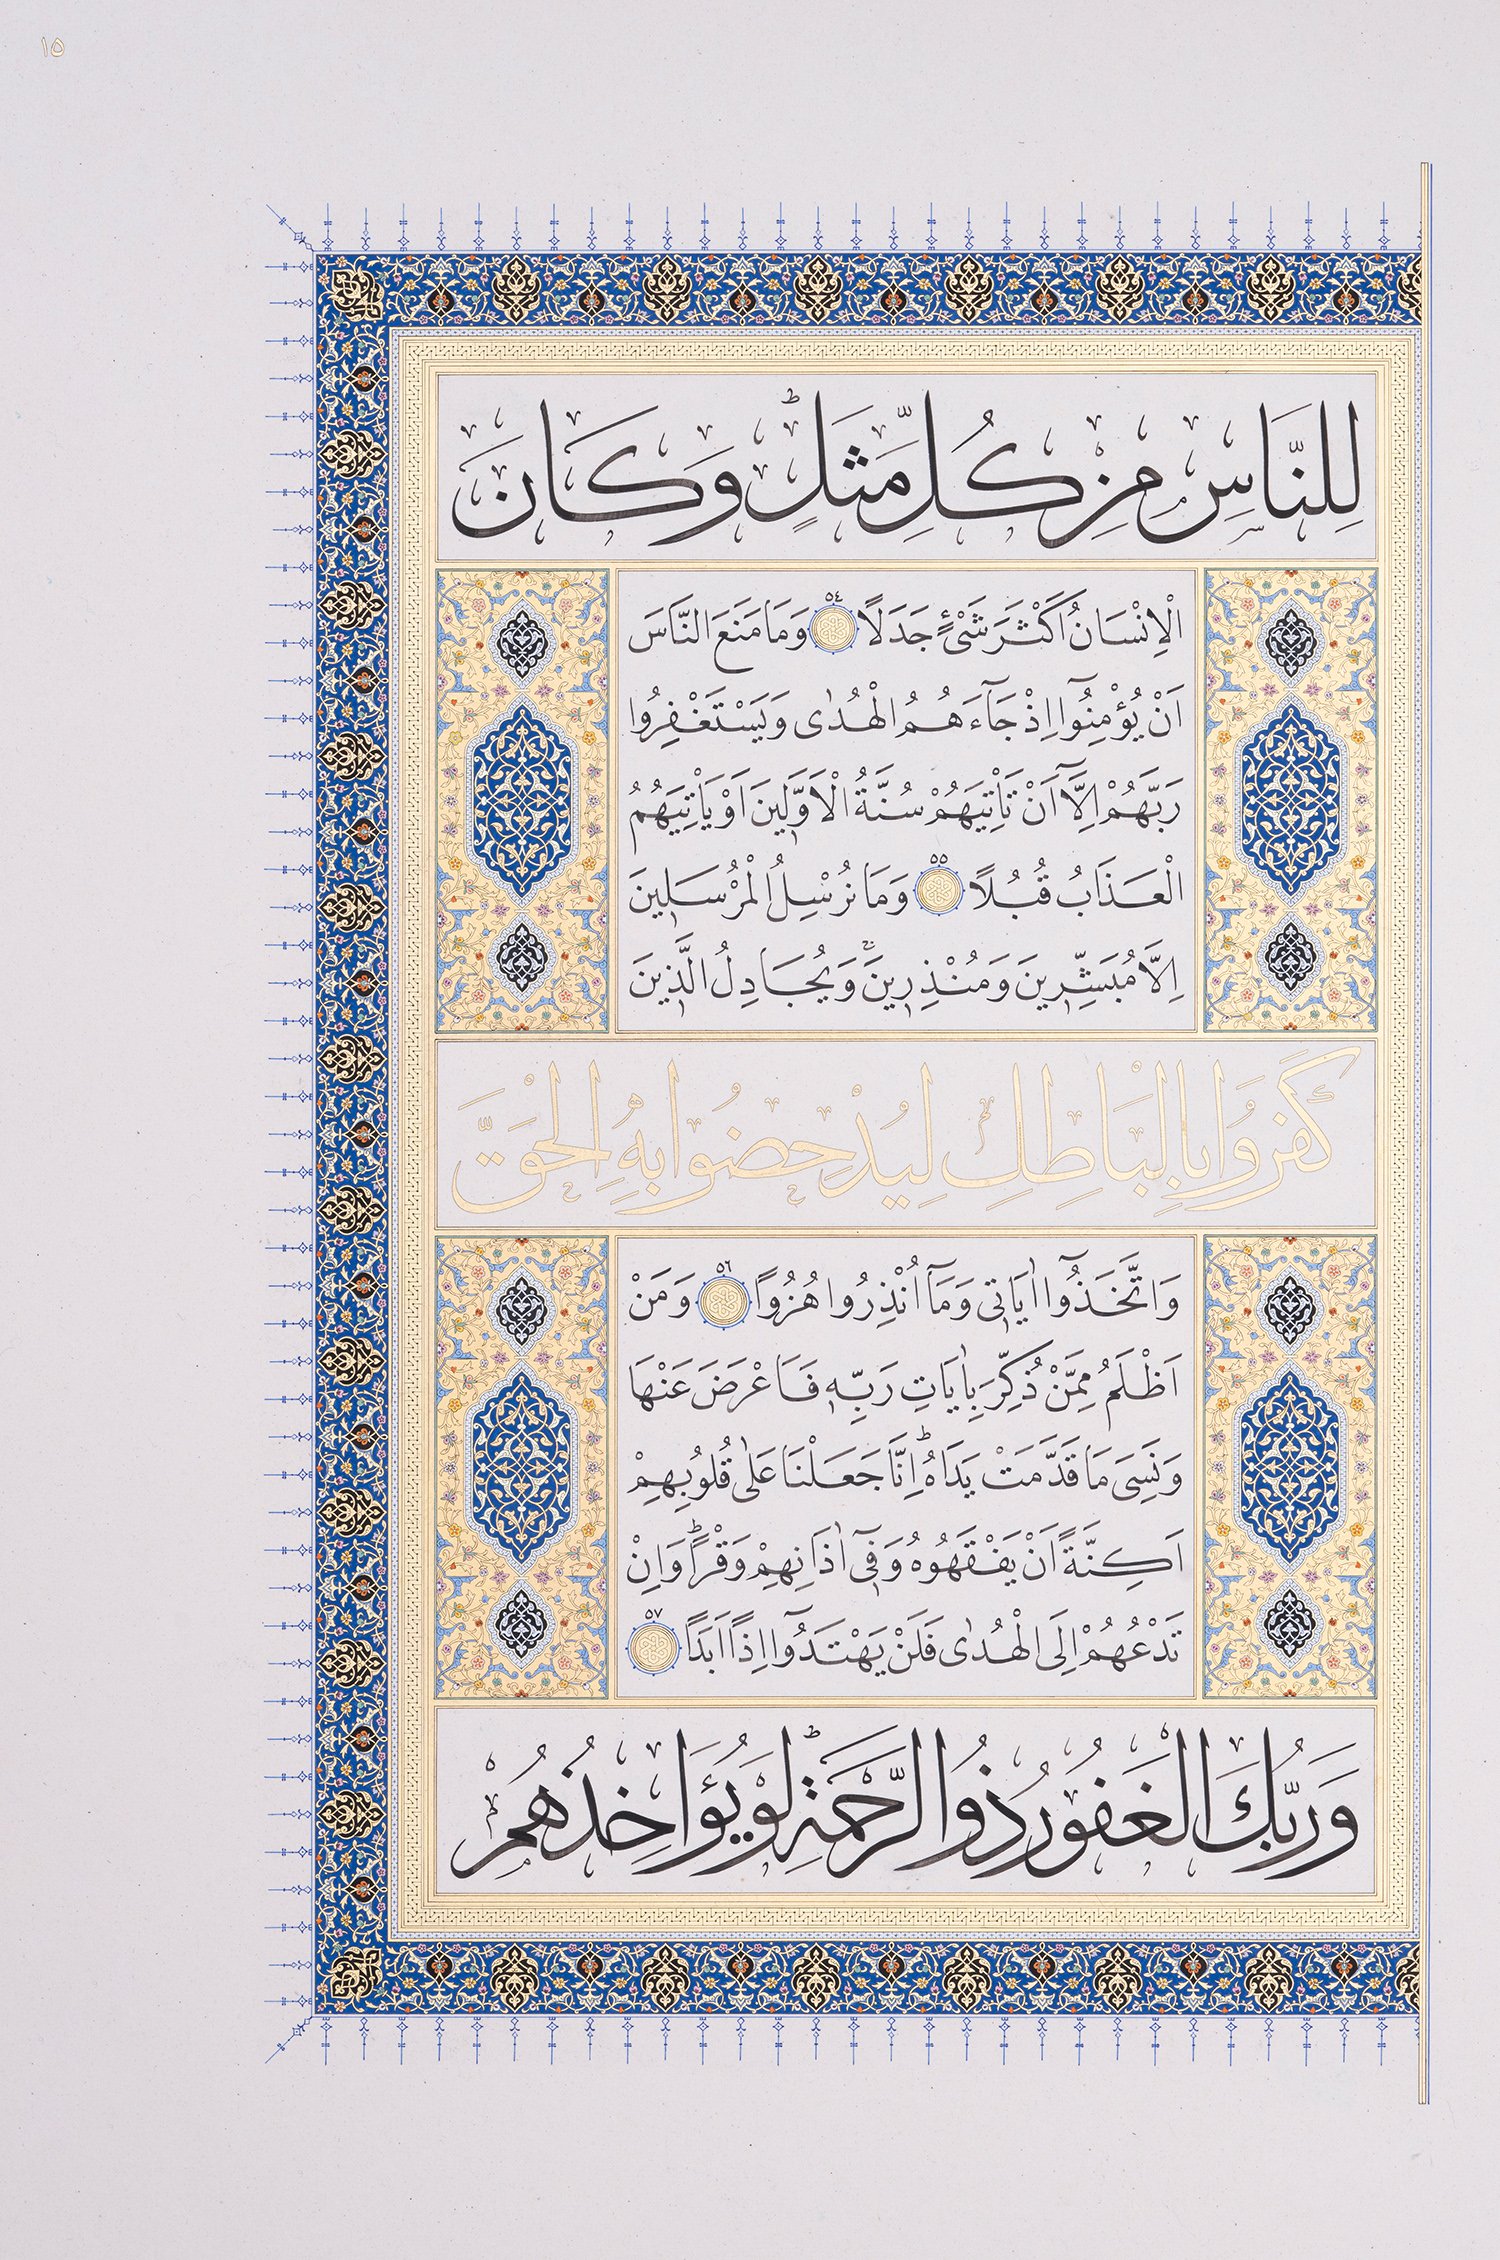 ١٥
لِلنَّاسِ مِنْ كُلِّ مَثَلٍ وَكَانَ
الْاِنْسَانُ اَكْثَرَ شَیْءٍ جَدَلًا ٥٤ وَمَا مَنَعَ النَّاسَ
اَنْ يُؤْمِنُٓوا اِذْ جَٓاءَهُمُ الْهُدٰى وَيَسْتَغْفِرُوا
رَبَّهُمْ اِلَّٓا اَنْ تَاْتِيَهُمْ سُنَّةُ الْاَوَّلٖينَ اَوْ يَاْتِيَهُمُ
الْعَذَابُ قُبُلًا ٥٥ وَمَا نُرْسِلُ الْمُرْسَلٖينَ
اِلَّا مُبَشِّرٖينَ وَمُنْذِرٖينَۚ وَيُجَادِلُ الَّذٖينَ
كَفَرُوا بِالْبَاطِلِ لِيُدْحِضُوا بِهِ الْحَقَّ
وَاتَّخَذُٓوا اٰيَاتٖى وَمَٓا اُنْذِرُوا هُزُوًا ٥٦ وَمَنْ
اَظْلَمُ مِمَّنْ ذُكِّرَ بِاٰيَاتِ رَبِّهٖ فَاَعْرَضَ عَنْهَا
وَنَسِىَ مَا قَدَّمَتْ يَدَاهُؕ اِنَّا جَعَلْنَا عَلٰى قُلُوبِهِمْ
اَكِنَّةً اَنْ يَفْقَهُوهُ وَفٖٓى اٰذَانِهِمْ وَقْرًاؕ وَاِنْ
تَدْعُهُمْ اِلَى الْهُدٰى فَلَنْ يَهْتَدُٓوا اِذًا اَبَدًا ٥٧
وَرَبُّكَ الْغَفُورُ ذُو الرَّحْمَةِؕ لَوْ يُؤَاخِذُهُمْ